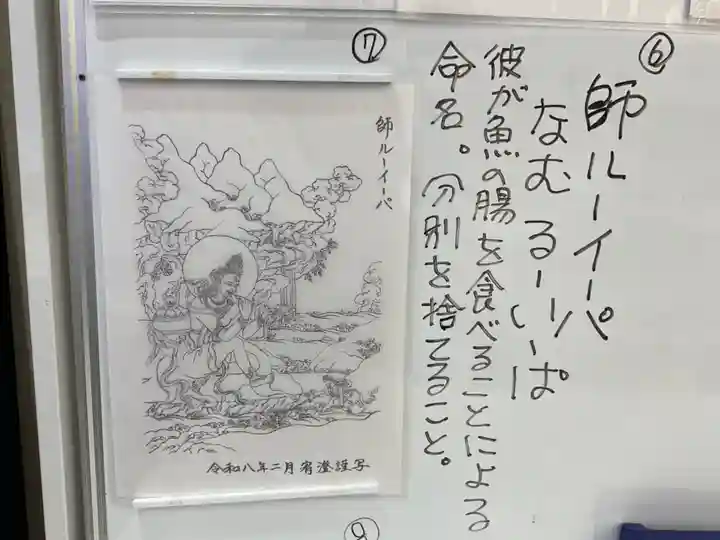 ⑥
師ルーイーパ
なむ るーいーぱ
彼が魚の腸を食べることによる
命名。分別を捨てること。
⑦
師ルーイーパ
令和八年二月宥澄謹写
⑧